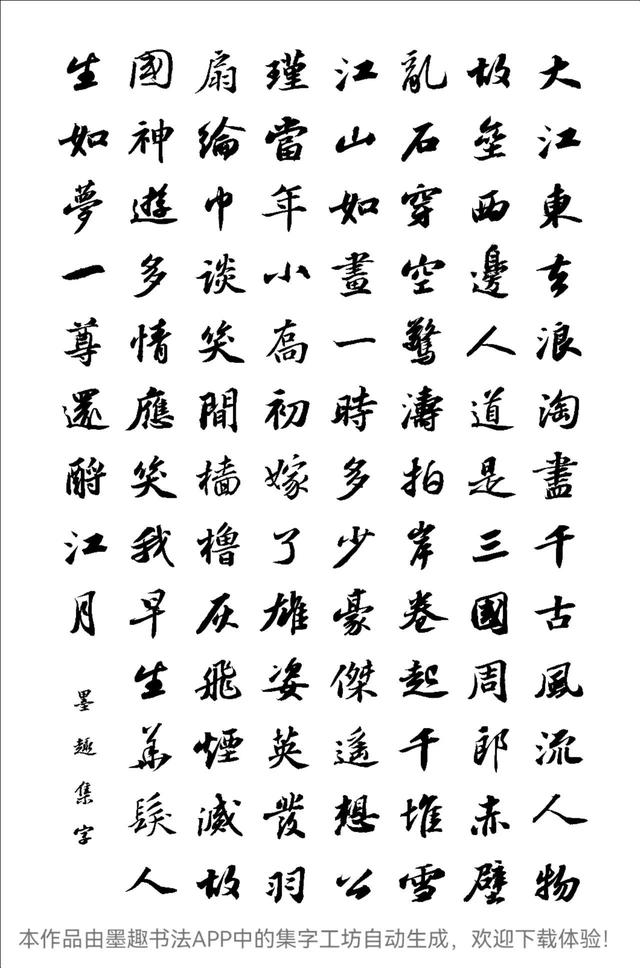 大江東去浪淘盡千古風流人物
故壘西邊人道是三國周郎赤壁
亂石穿空驚濤拍岸卷起千堆雪
江山如畫一時多少豪傑遙想公
瑾當年小喬初嫁了雄姿英發羽
扇綸巾談笑間檣櫓灰飛煙滅故
國神遊多情應笑我早生華髮人
生如夢一尊還酹江月
墨趣集字
本作品由墨趣书法APP中的集字工坊自动生成，欢迎下载体验！